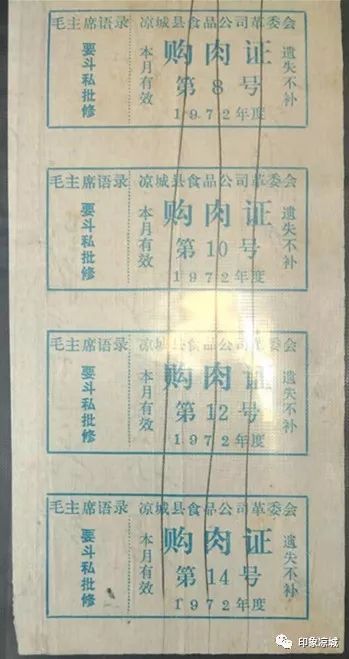 毛主席语录
要斗私批修
凉城县食品公司革委会
本月有效
购肉证
第8号
1972年度
遗失不补
毛主席语录
要斗私批修
凉城县食品公司革委会
本月有效
购肉证
第10号
1972年度
遗失不补
毛主席语录
要斗私批修
凉城县食品公司革委会
本月有效
购肉证
第12号
1972年度
遗失不补
毛主席语录
要斗私批修
凉城县食品公司革委会
本月有效
购肉证
第14号
1972年度
遗失不补
印象凉城